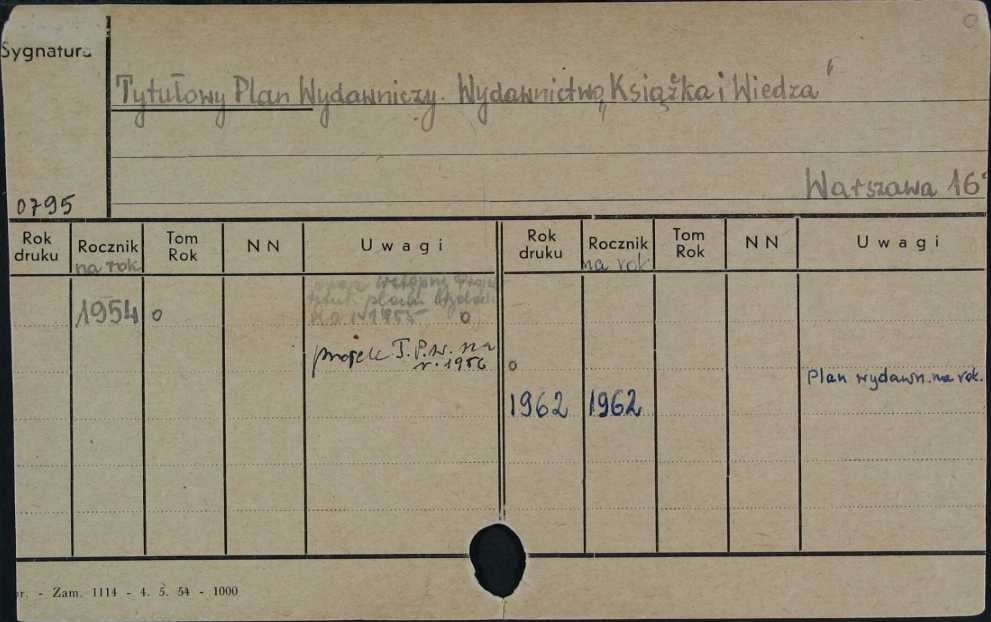 Sygnatura
Tytułowy Plan Wydawniczy. Wydawnictwo „Książka i Wiedza"
Warszawa 16°
0795
Rok druku Rocznik na rok Tom Rok NN Uwagi Rok druku Rocznik na rok Tom Rok NN Uwagi
oraz wstępny Projekt
tytuł. planu Wydawn
1954 o na r. 1955 o
projek T.P.W. na
r. 1956 o
Plan wydawn. na rok.
1962 1962
Zam. 1114 - 4. 5. 54 - 1000